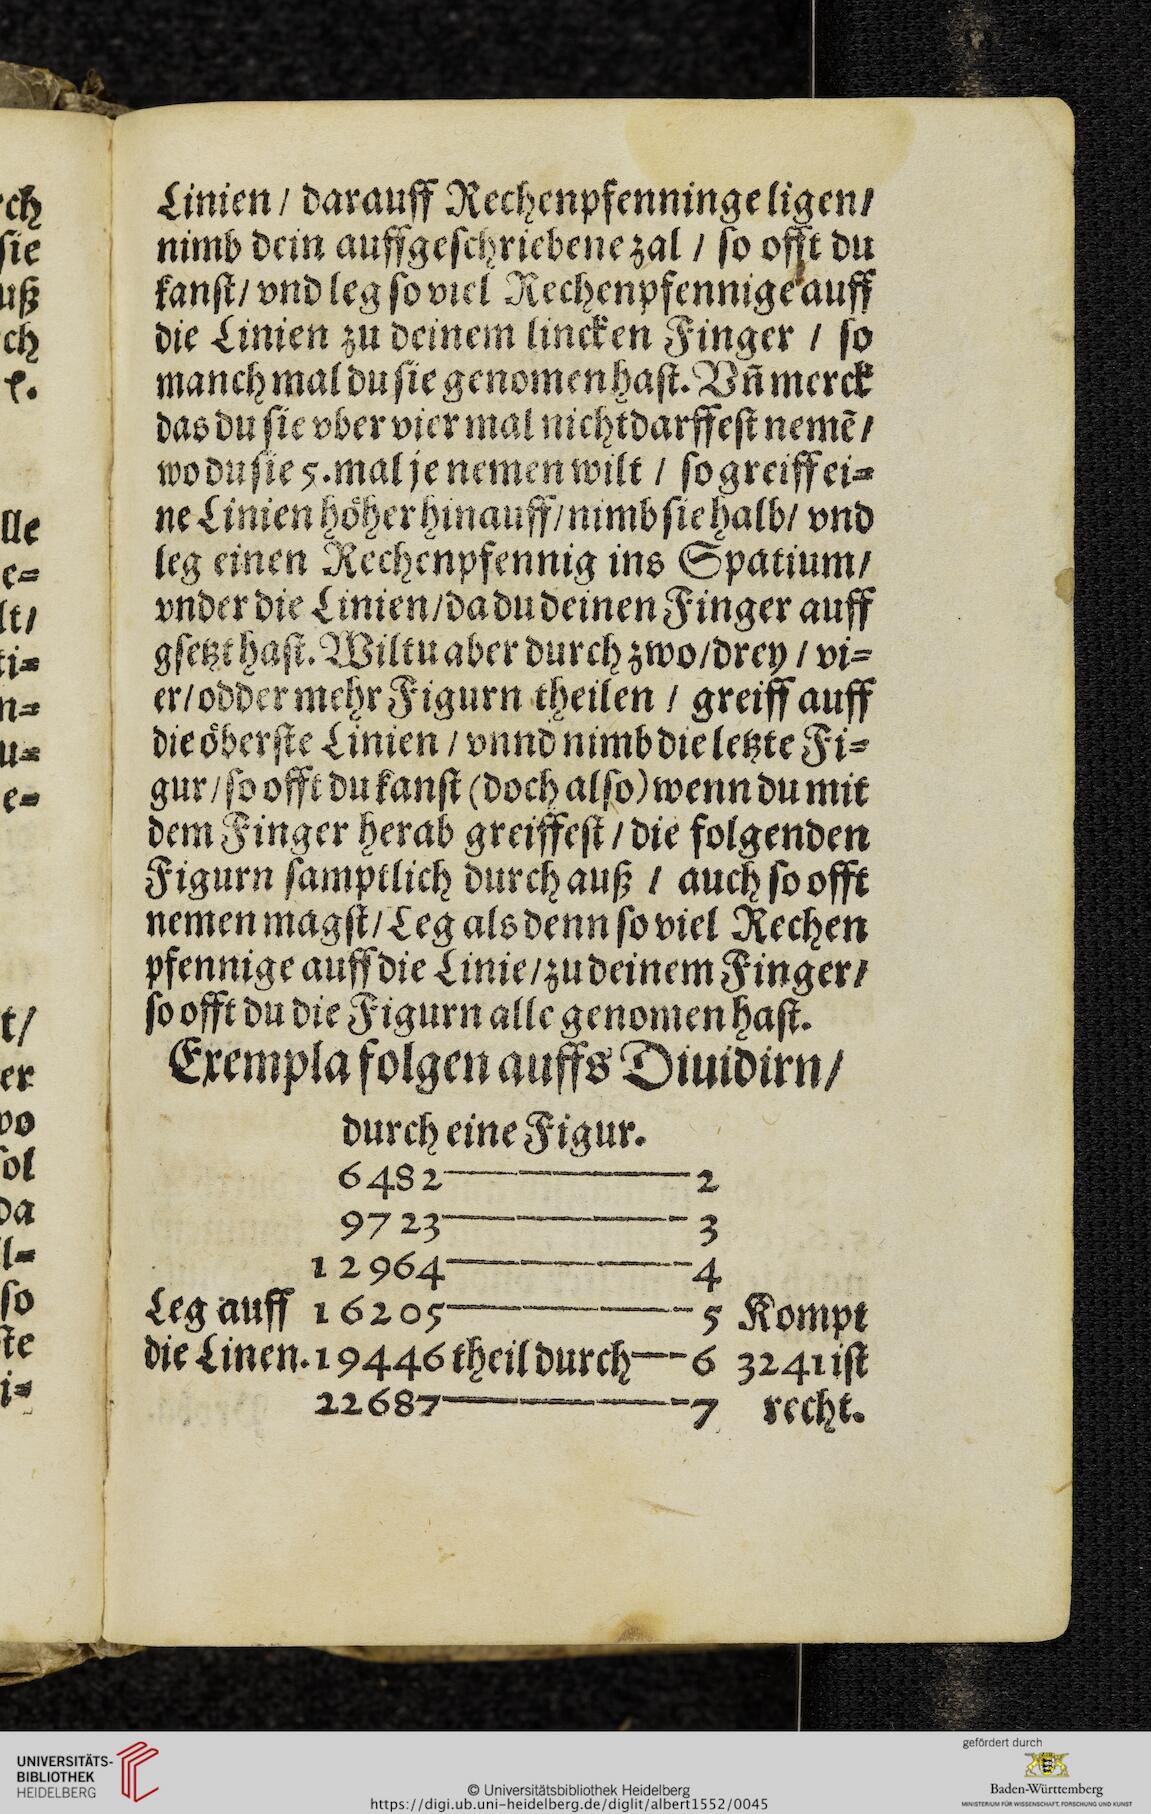 Linien / darauff Rechenpfenninge ligen /
nimb dein auffgeschriebene zal / so offt du
kanst / vnd leg so viel Rechenpfennige auff
die Linien zu deinem lincken Finger / so
manch mal du sie genomen hast. Vñ merck
das du sie vber vier mal nicht darffest nemē /
wo du sie 5. mal je nemen wilt / so greiff ei=
ne Linien höher hinauff / nimb sie halb / vnd
leg einen Rechenpfennig ins Spatium /
vnder die Linien / da du deinen Finger auff
gsetzt hast. Wiltu aber durch zwo / drey / vi=
er / odder mehr Figurn theilen / greiff auff
die öberste Linien / vnnd nimb die letzte Fi=
gur / so offt du kanst (doch also) wenn du mit
dem Finger herab greiffest / die folgenden
Figurn samptlich durch auß / auch so offt
nemen magst / Leg als denn so viel Rechen
pfennige auff die Linie / zu deinem Finger /
so offt du die Figurn alle genomen hast.
Exempla folgen auffs Diuidirn /
durch eine Figur.
6482 — 2
9723 — 3
12964 — 4
Leg auff 16205 — 5 Kompt
die Linen. 19446 theil durch — 6 3241 ist
22687 — 7 recht.
rch
sie
uß
ch
lle
e=
lt /
ti=
n=
u=
e=
t /
er
wo
sol
da
l=
so
ste
i=
UNIVERSITÄTS-
BIBLIOTHEK
HEIDELBERG
© Universitätsbibliothek Heidelberg
https://digi.ub.uni-heidelberg.de/diglit/albert1552/0045
gefördert durch
Baden-Württemberg
MINISTERIUM FÜR WISSENSCHAFT, FORSCHUNG UND KUNST